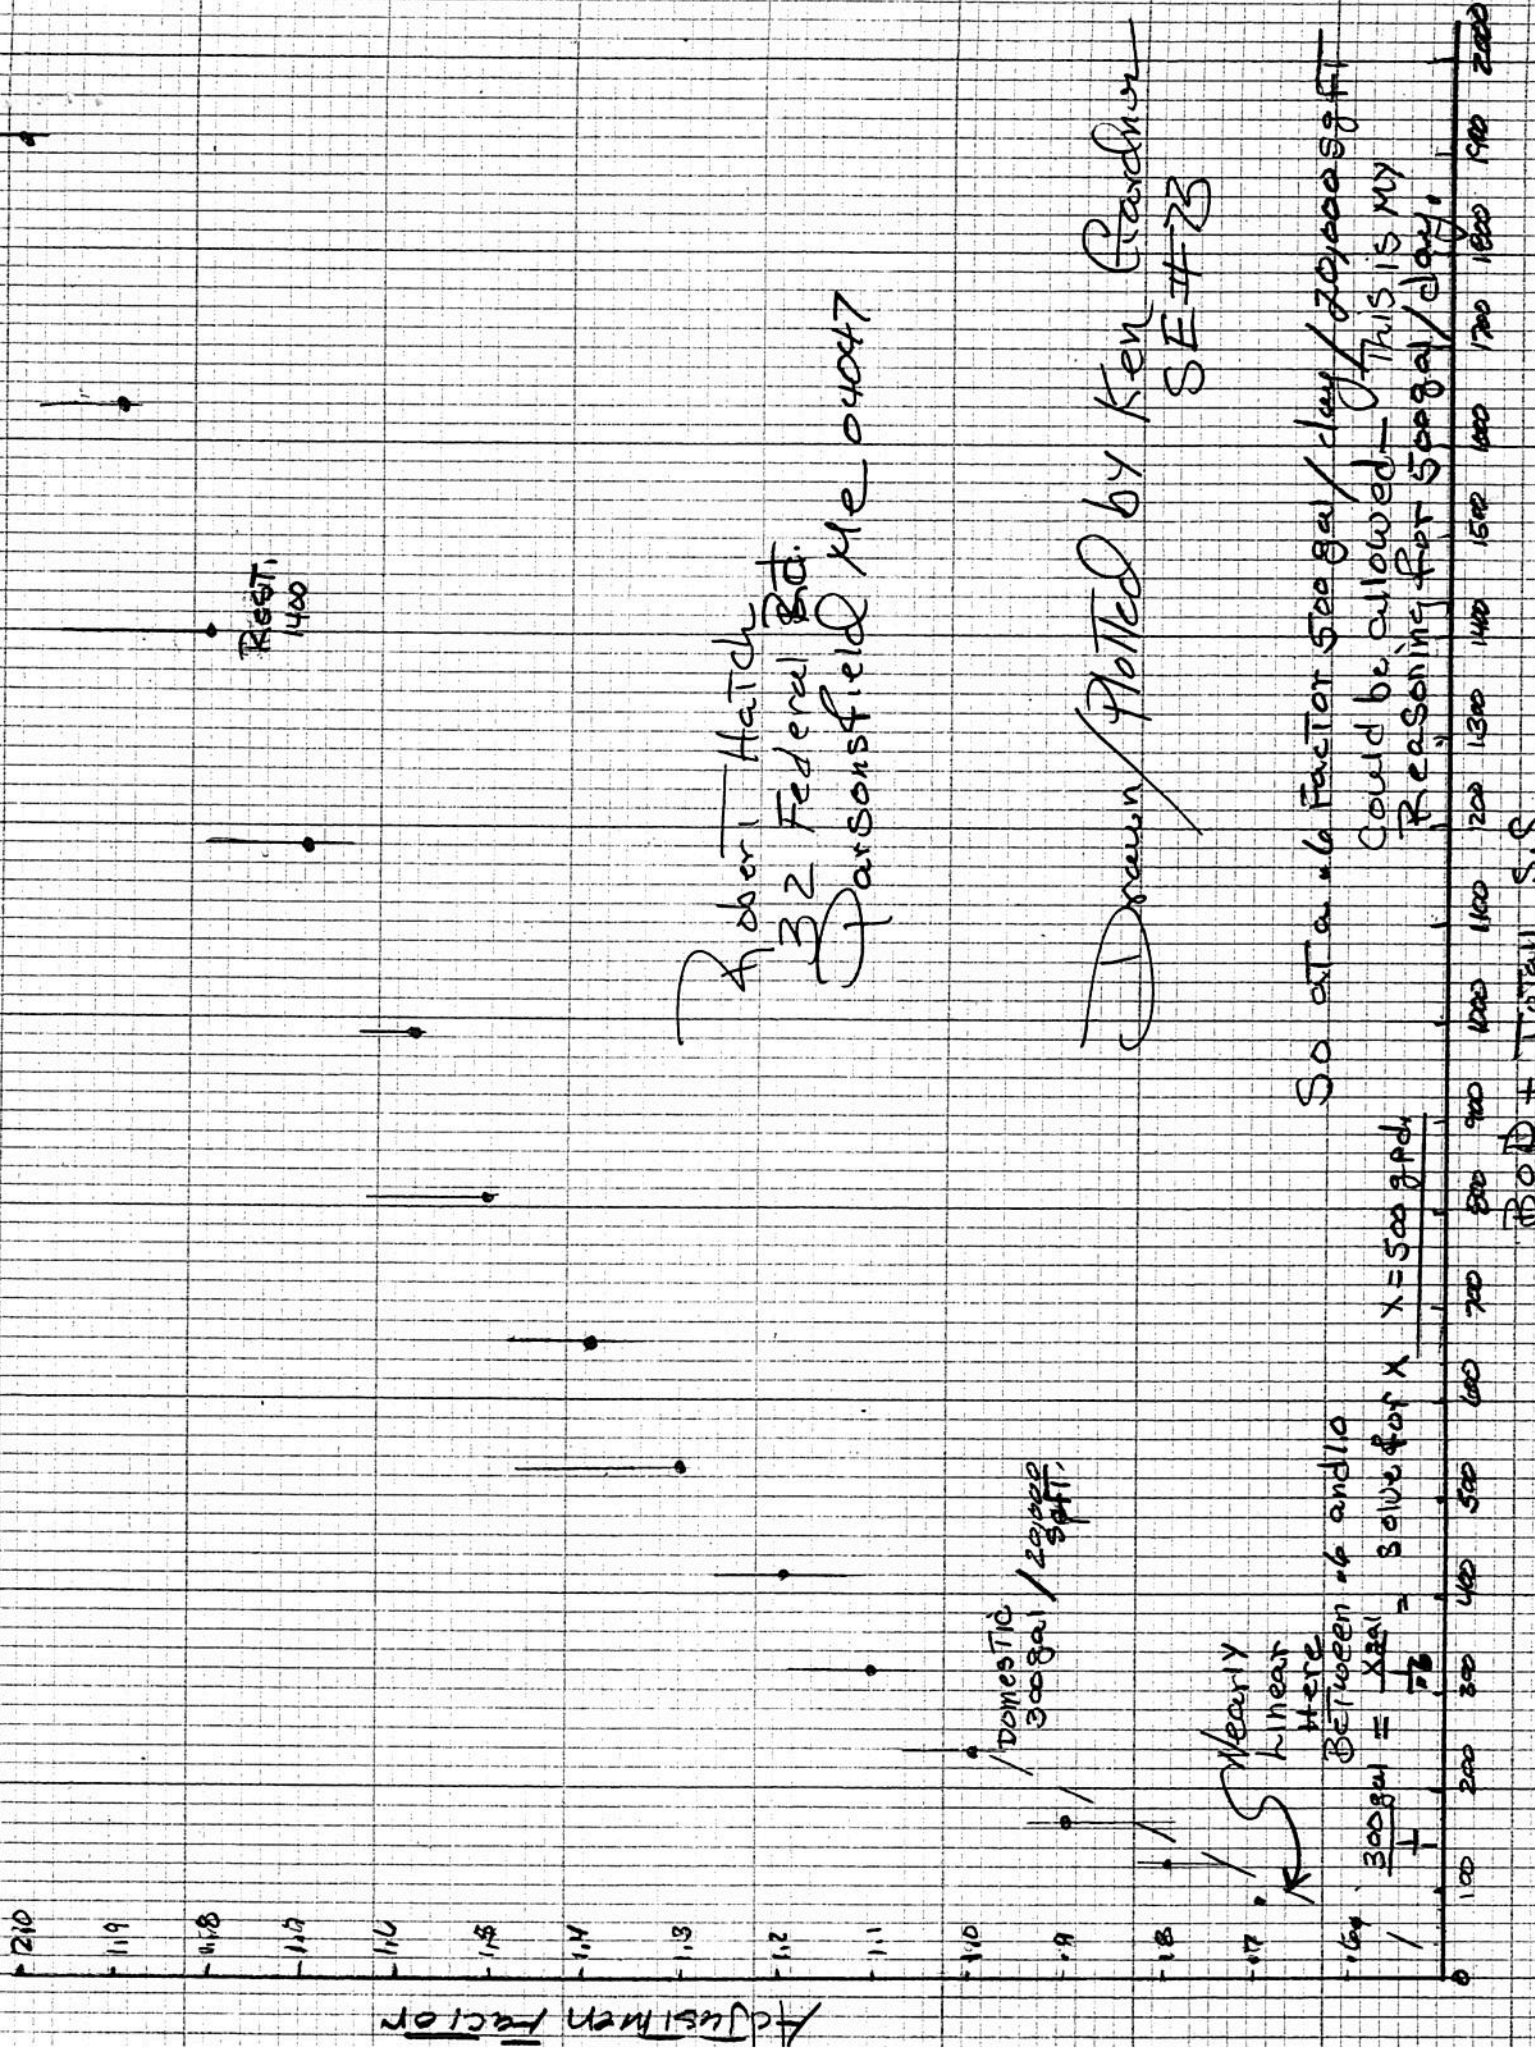 Adjustmen Factor
2.0
1.9
1.8
1.7
1.6
1.5
1.4
1.3
1.2
1.1
1.0
.9
.8
.7
.6
REST.
1400
Robert Hatch
32 Federal Rd.
Parsonsfield Me 04047
Drawn/Plotted by Ken Gardner
SE#73
Domestic
300gal / 20,000
sqft.
Nearly
Linear
Here
Between .6 and 1.0
300gal = Xgal = Solve for X X=500gpd
1 .6
So at a .6 Factor 500 gal/day/20,000 sqft
Could be allowed - This is My
Reasoning for 500gal/day.
0 100 200 300 400 500 600 700 800 900 1000 1100 1200 1300 1400 1500 1600 1700 1800 1900 2000
BOD + Total S.S